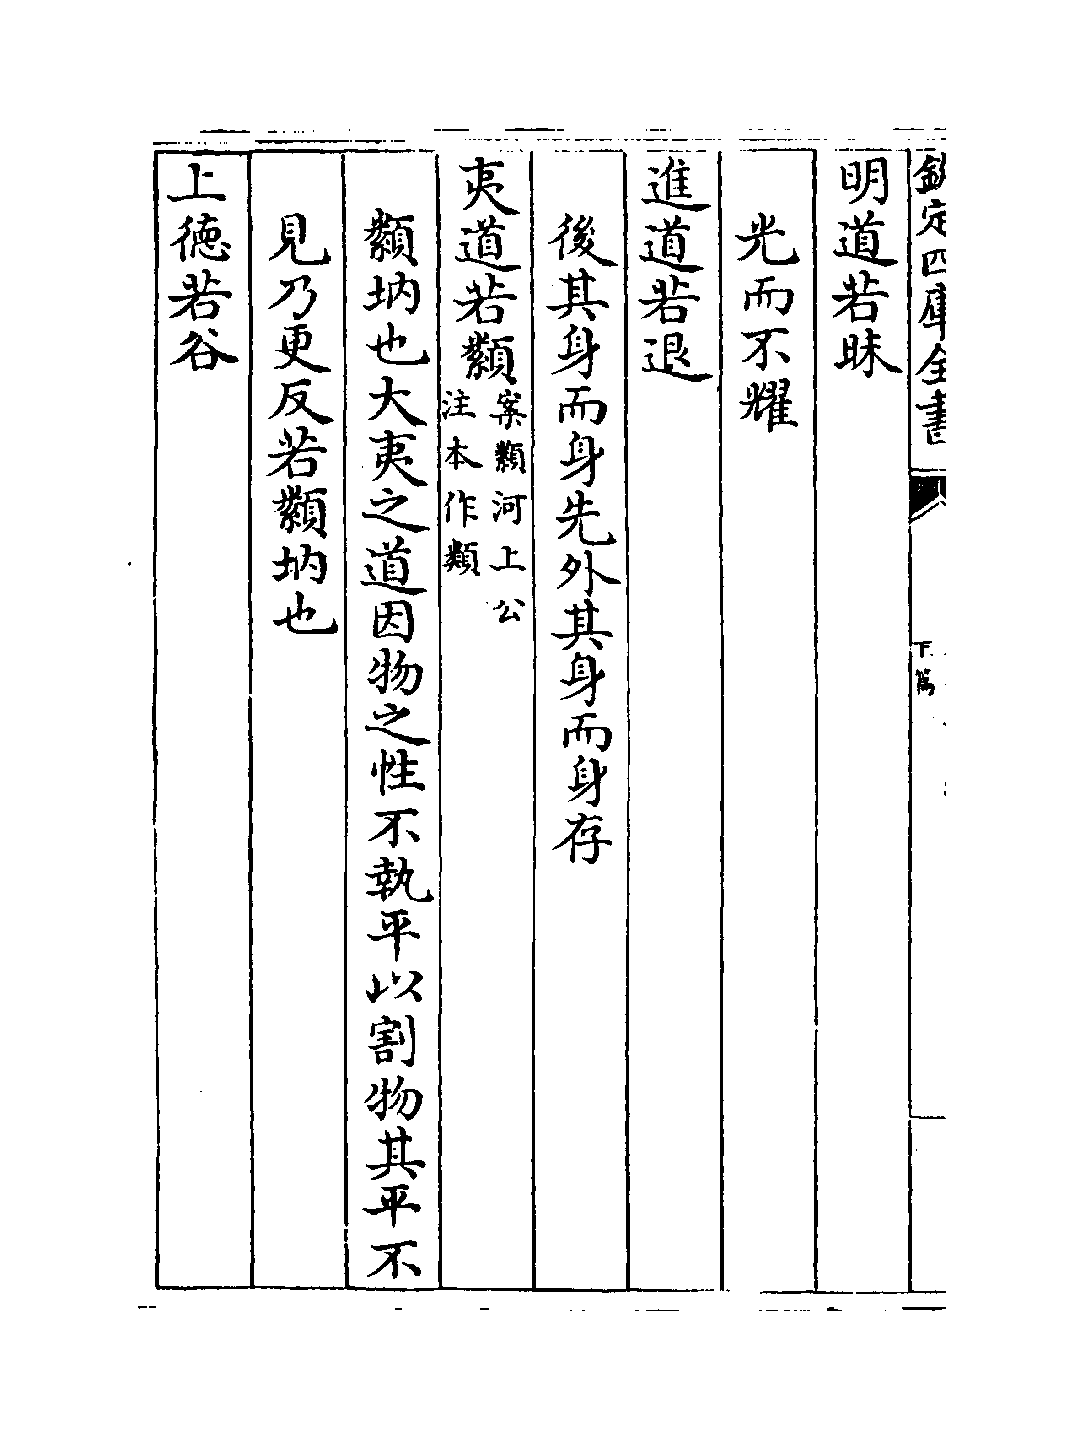 欽定四庫全書
下篇
明道若昧
光而不耀
進道若退
後其身而身先外其身而身存
夷道若纇案纇河上公
注本作類
纇㘨也大夷之道因物之性不執平以割物其平不
見乃更反若纇㘨也
上徳若谷